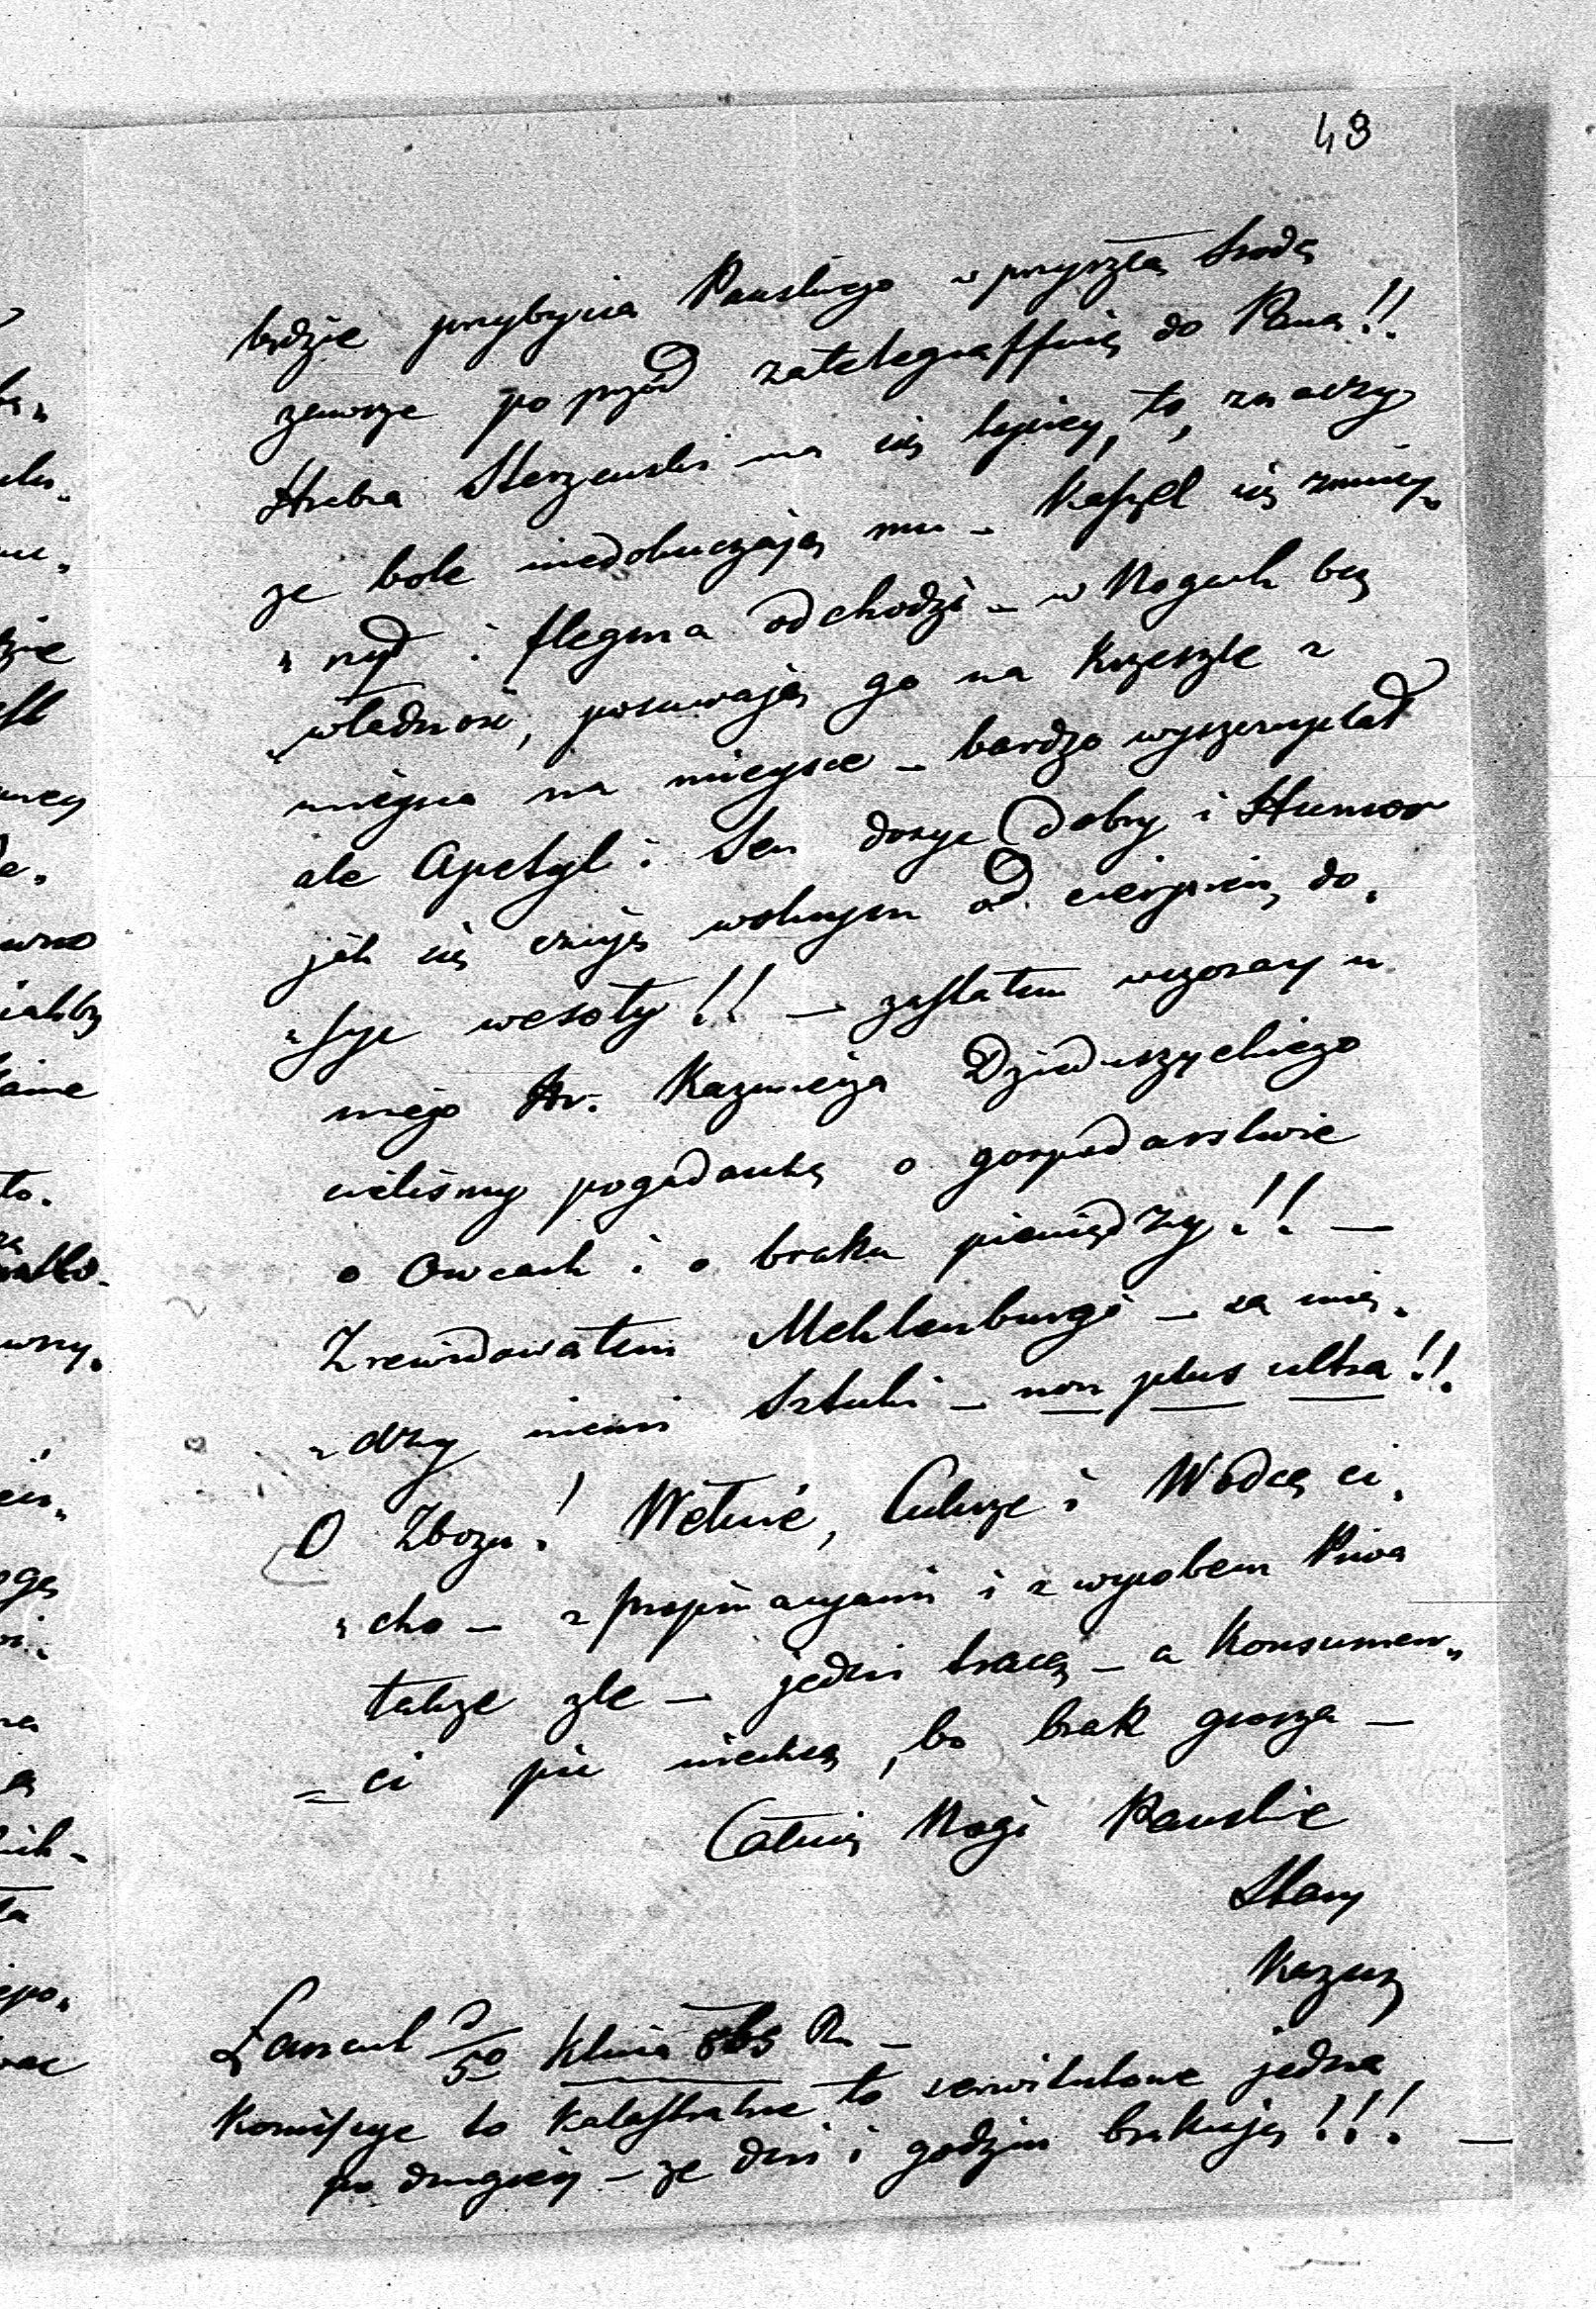 48
będzie przybycia Pańskiego w przyszłą Srodę
zawsze po przód zatelegraffuię do Pana!!
Hrabia Starzenski ma się lepiey, to, znaczy
ze bole niedokuczają mu – Kaszel się zmniey„
„ szył i flegma odchodzi – w Nogach bez
„władność, posuwają go na Krzeszle z
mieysca na mieysce – bardzo wyszczuplał
ale Apetyt i Sen dosyc Dobry i Humor
jak się czuję wolnym od cierpień, do„
„syc wesoły!! – zastałem wczoray u
niego Hr. Kazmierza Dzieduszyckiego
mieliśmy pogadankę o gospodarstwie
o Owcach i o braku pieniędzy!! –
Zrewidowałem Mehlenburgi – są mię„
„dzy niemi Sztuki – non plus ultra!!
O Zbozu! Wełnie, Cukrze i Wodcę ci„
„cho – z propinacyami i z wyrobem Piwa
takze zle – jedni tracą – a Konsumen„
„ci pic niechcą, bo brak grosza –
Całuię Nogi Pańskie
Stary
Łancut 9/50 Ru –
Komissye to Katastralne to serwitutowe jedna
po drugiey – ze dni i godzin brakuję!!! –